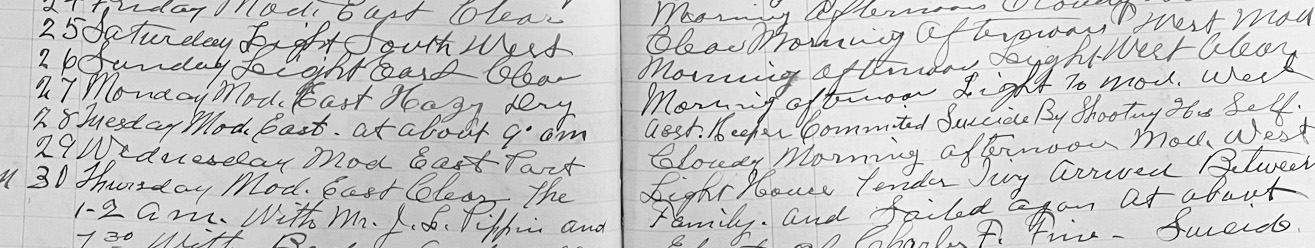 24 Friday Mod. East Clear Morning Afternoon Cloudy
25 Saturday Light South West Clear Morning Afternoon West Mod
26 Sunday Light East Clear Morning afternoon Light West Clear
27 Monday Mod. East Hazy Dry Morning afternoon Light To Mod. West
28 Tuesday Mod. East. at about 9 am Asst. Keeper Commited Suicide By Shooting His Self.
29 Wednesday Mod East Part Cloudy Morning afternoon Mod. West
30 Thursday Mod. East Clear The Light House Tender Ivy arrived Between
1-2 a.m. With Mr. J. L. Pippin and Family. and Sailed again At about
7 30 With of Charles F. Suicide.